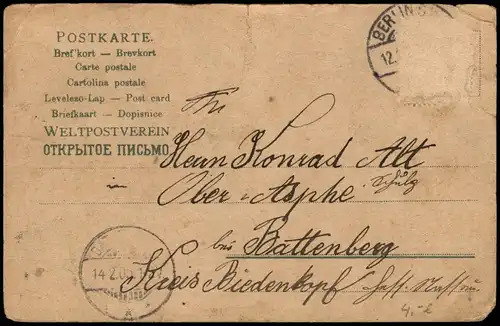 POSTKARTE.
Bref'kort — Brevkort
Carte postale
Cartolina postale
Levelezo-Lap — Post card
Briefkaart — Dopisnice
WELTPOSTVEREIN
ОТКРЫТОЕ ПИСЬМО
BERLIN
12.
An
Herrn Konrad Alt
in Ober-Asphe Schulz
bei Battenberg
14.2.00
Kreis Biedenkopf Hess. Nassau
4,-